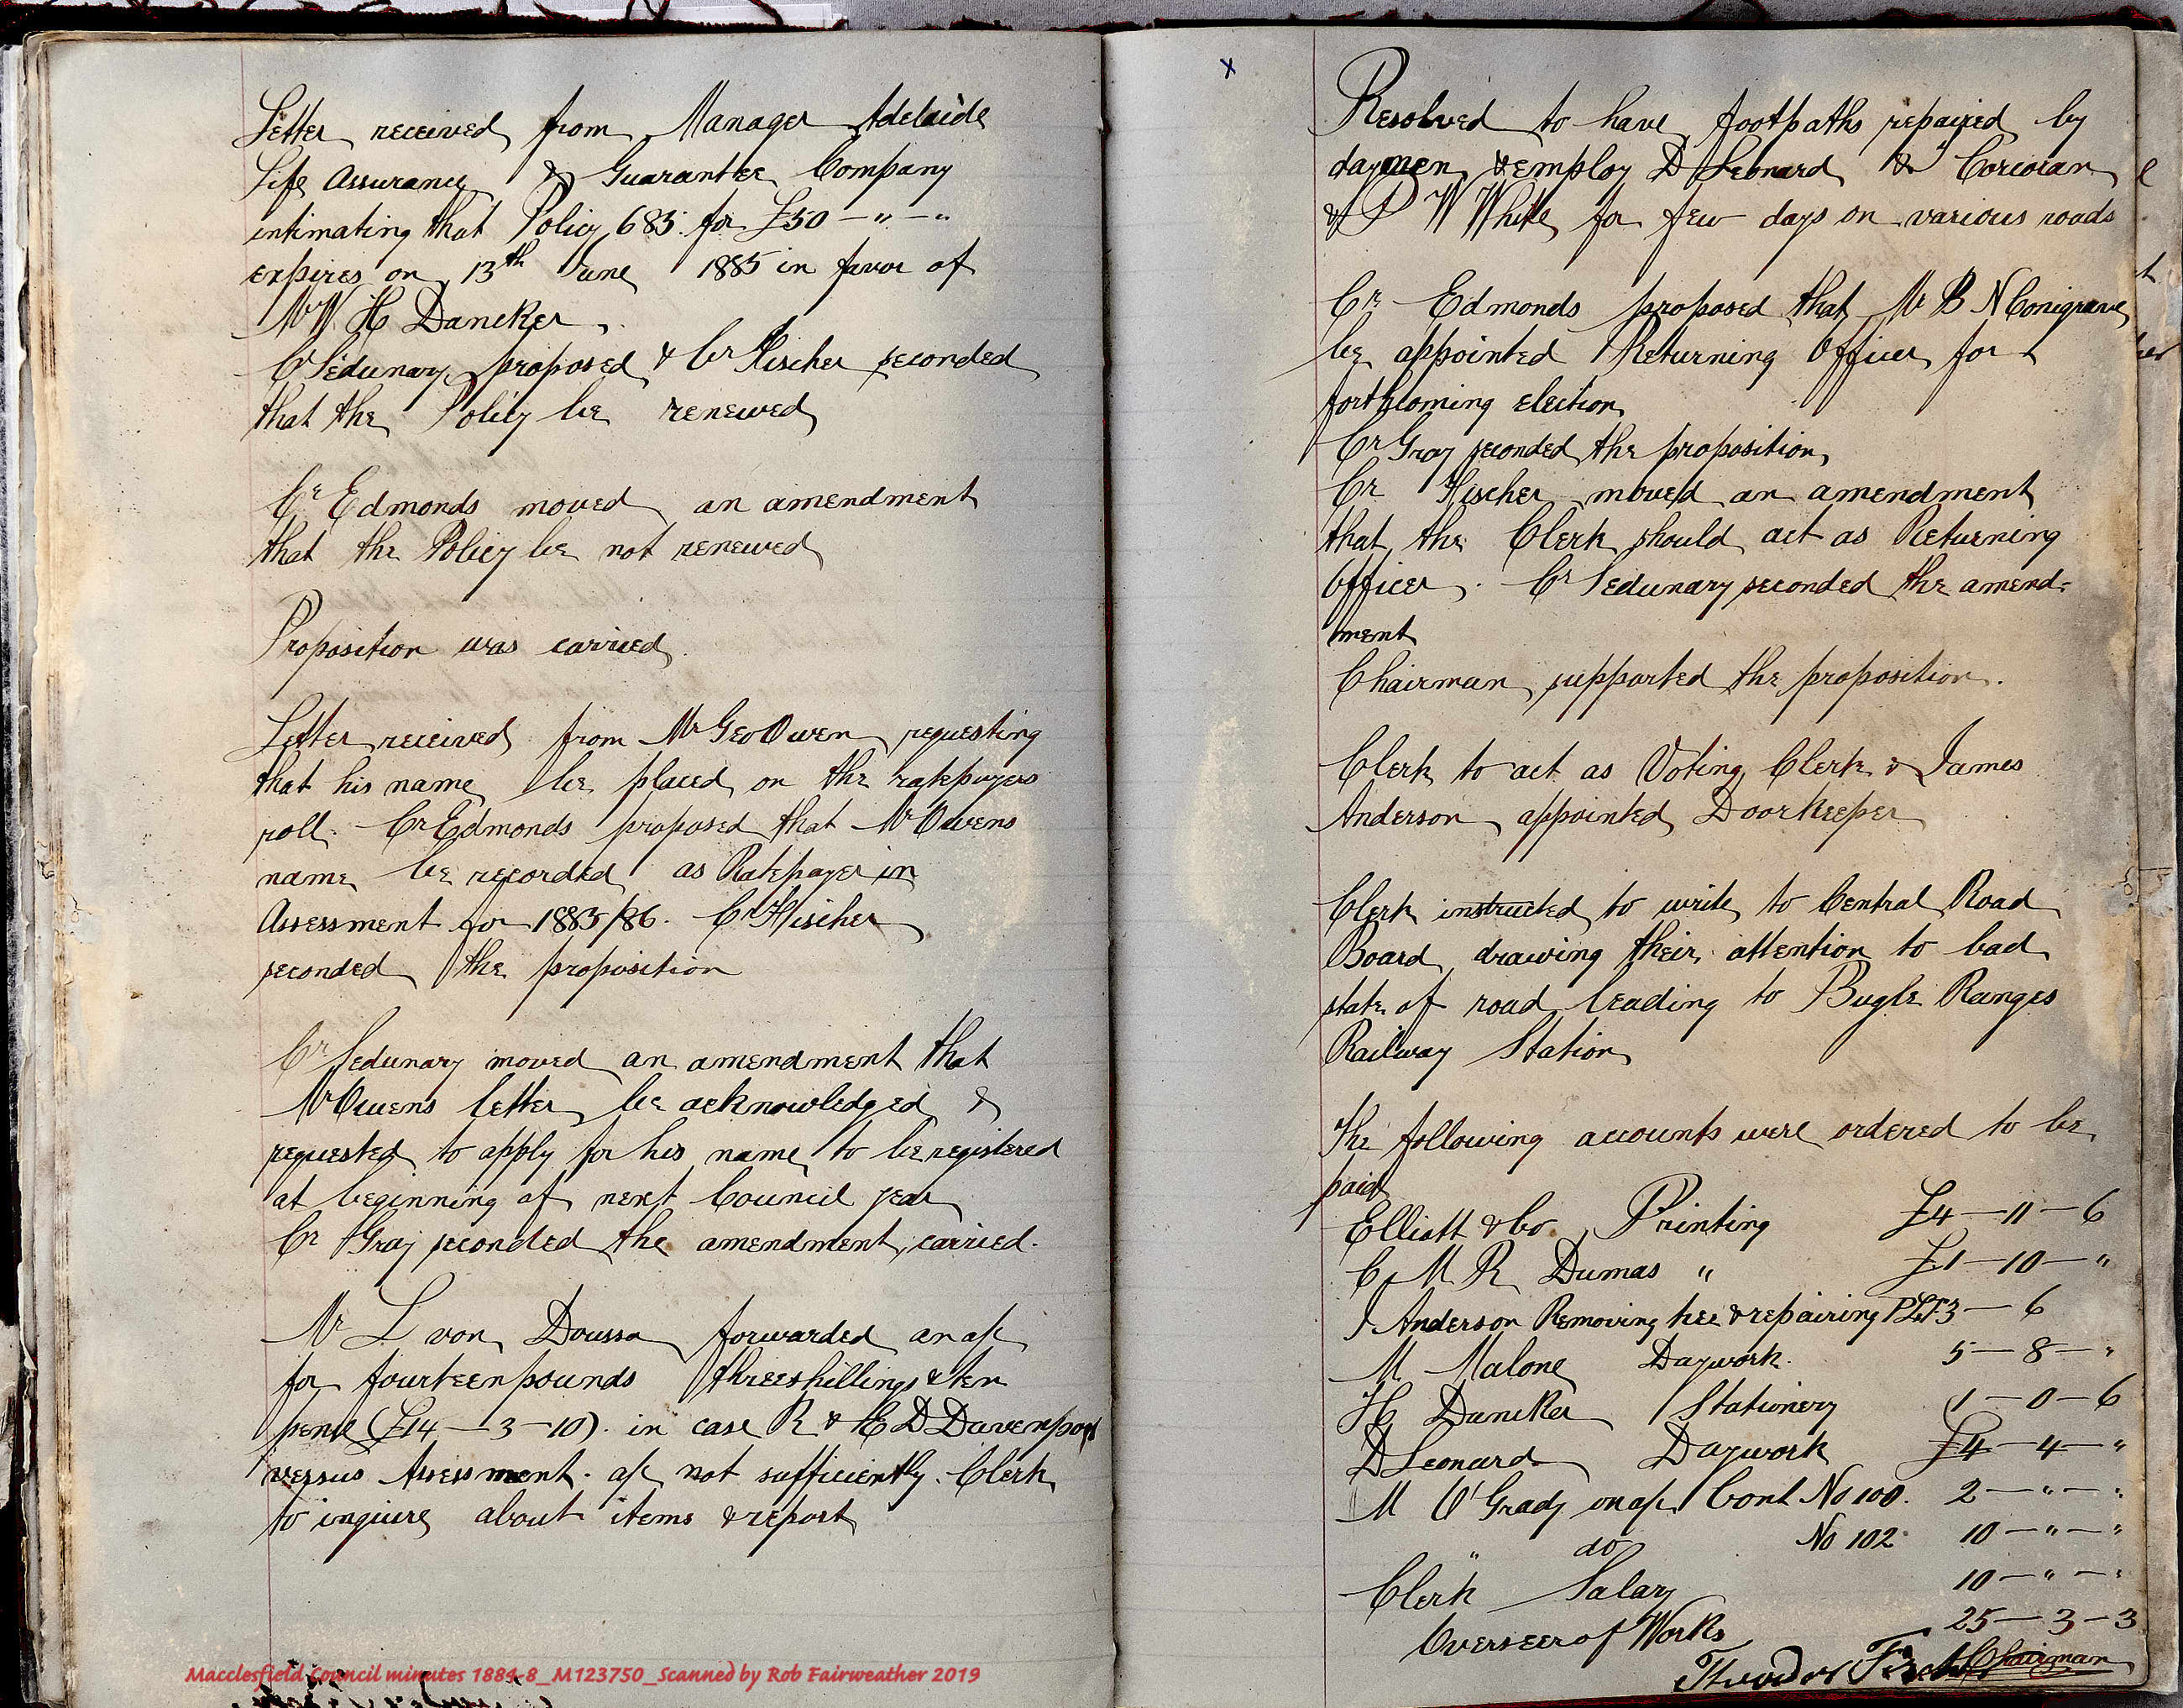 Letter received from Manager Adelaide
Life Assurance & Guarantee Company
intimating that Policy 685 for £50 — " — "
expires on 13th June 1885 in favor of
Mr W H Dancker
Cr Sedunary proposed & Cr Fischer seconded
that the Policy be renewed
Cr Edmonds moved an amendment
that the Policy be not renewed
Proposition was carried
Letter received from Mr Geo Owen requesting
that his name be placed on the ratepayers
roll. Cr Edmonds proposed that Mr Owens
name be recorded as Ratepayer in
Assessment for 1885/86. Cr Fischer
seconded the proposition
Cr Sedunary moved an amendment that
Mr Owens letter be acknowledged &
requested to apply for his name to be registered
at beginning of next Council year
Cr Gray seconded the amendment, carried.
Mr L von Doussa forwarded an a/c
for fourteen pounds three shillings & ten
pence (£14 — 3 — 10). in case R & E D Davenport
versus Assessment. a/c not sufficiently. Clerk
to inquire about items & report
x
Resolved to have footpaths repaired by
daymen & employ D Leonard & Corcoran
& P W White for few days on various roads
Cr Edmonds proposed that Mr B N Conigrave
be appointed Returning Officer for
forthcoming election
Cr Gray seconded the proposition,
Cr Fischer moved an amendment
that the Clerk should act as Returning
Officer. Cr Sedunary seconded the amend-
ment
Chairman supported the proposition.
Clerk to act as Voting Clerk & James
Anderson appointed Doorkeeper
Clerk instructed to write to Central Road
Board drawing their attention to bad
state of road leading to Bugle Ranges
Railway Station
The following accounts were ordered to be
paid
Elliott & Co Printing £4 — 11 — 6
C M R Dumas " £1 — 10 — "
J Anderson Removing tree & repairing 3 — 6
M Malone Daywork. 5 — 8 — "
H Dancker Stationery 1 — 0 — 6
D Leonard Daywork £4 — 4 — "
M O'Grady on a/c Cont No 100. 2 — " — "
" do No 102 10 — " — "
Clerk Salary 10 — " — "
Overseer of Works 25 — 3 — 3
Chairman
Macclesfield Council minutes 1884-8_M123750_Scanned by Rob Fairweather 2019